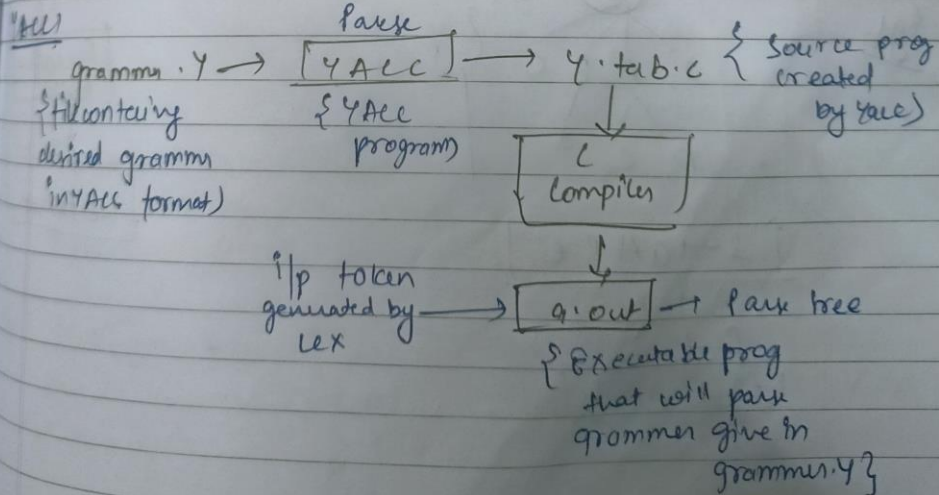 YACC
Parse
gramma.Y → [YACC] → Y.tab.c { Source prog
created
by yacc)
{file conteing
desired gramma
in YACC format)
{YACC
program)
C
Compiler
i/p token
generated by
Lex
→ a.out → Parse tree
{Executable prog
that will parse
grommer give in
grammer.Y}